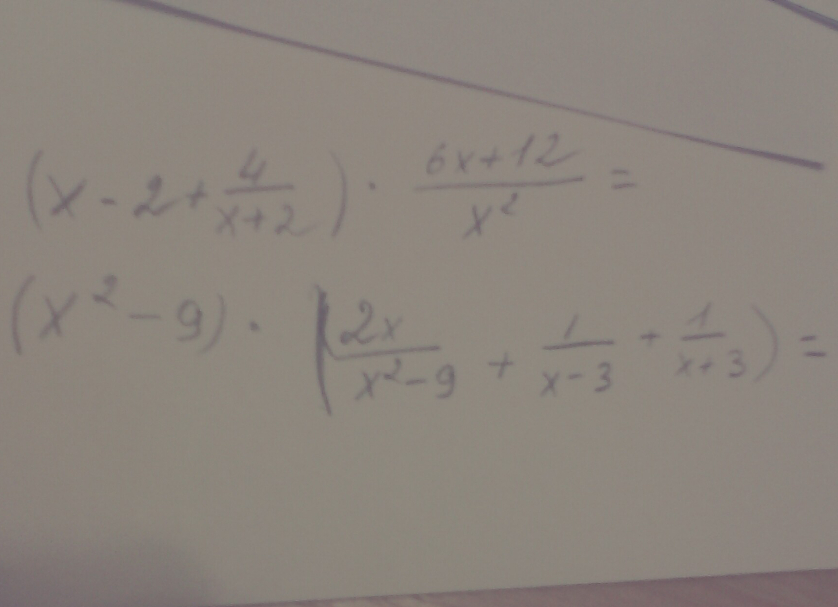 (x - 2 + 4/(x+2)) · (6x+12)/x² =
(x² - 9) · (2x/(x²-9) + 1/(x-3) + 1/(x+3)) =